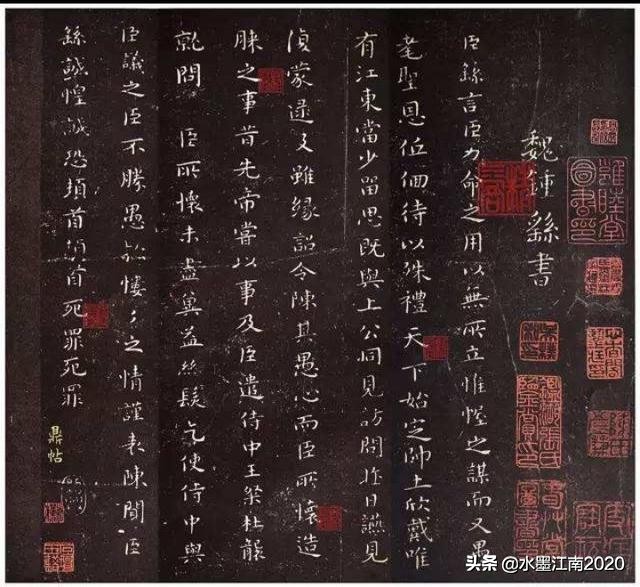 魏鍾繇書
臣繇言臣力命之用以無所立惟幄之謀而又愚
耄聖恩低佪待以殊禮天下始定帥土欣戴唯
有江東當少留思既與上公同見訪問昨日讌見
復蒙逮及雖緣詔令陳其愚心而臣所懷造
膝之事昔先帝嘗以事及臣遣侍中王粲杜襲
就問 臣所懷未盡冀益絲髮乞使侍中與
臣議之臣不勝愚款慺々之情謹表陳聞臣
繇誠惶誠恐頓首頓首死罪死罪
鼎帖
雍睦堂
圖書印
头条 @水墨江南2020